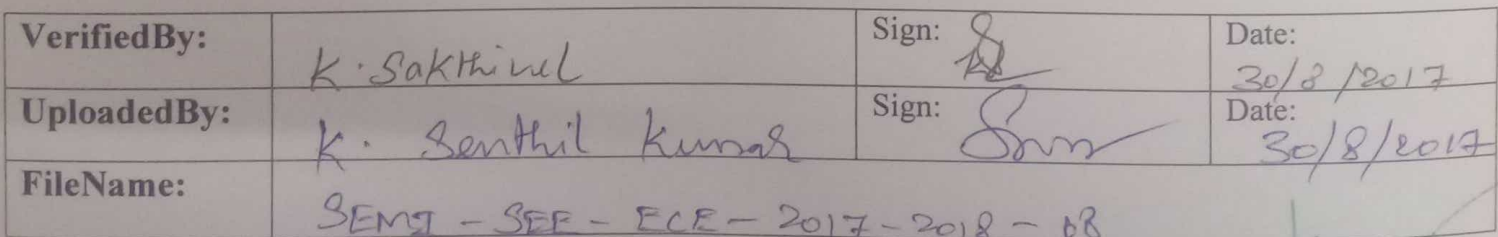 VerifiedBy: K. Sakthivel Sign: Date: 30/8/2017
UploadedBy: K. Senthil Kumar Sign: Date: 30/8/2017
FileName: SEMI - SEE - ECE - 2017-2018 -